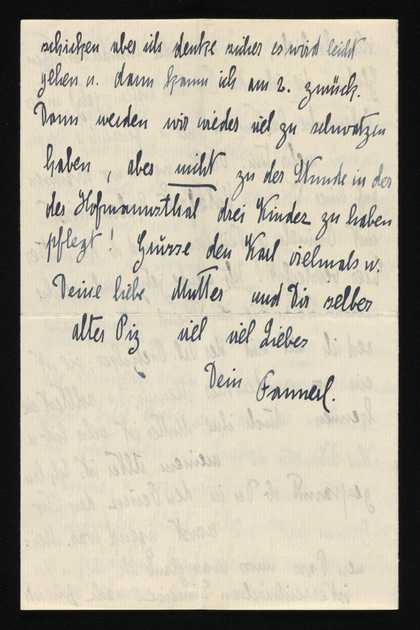 schicken aber ich denke sicher es wird leicht
gehen u. dann komm ich am 2. zurück.
Dann werden wir wieder viel zu schwatzen
haben, aber nicht zu der Stunde in der
der Hofmannsthal drei Kinder zu haben
pflegt! Grüsse den Karl vielmals u.
Deine liebe Mutter und Dir selber
altes viel viel Liebes
Dein Fannerl.